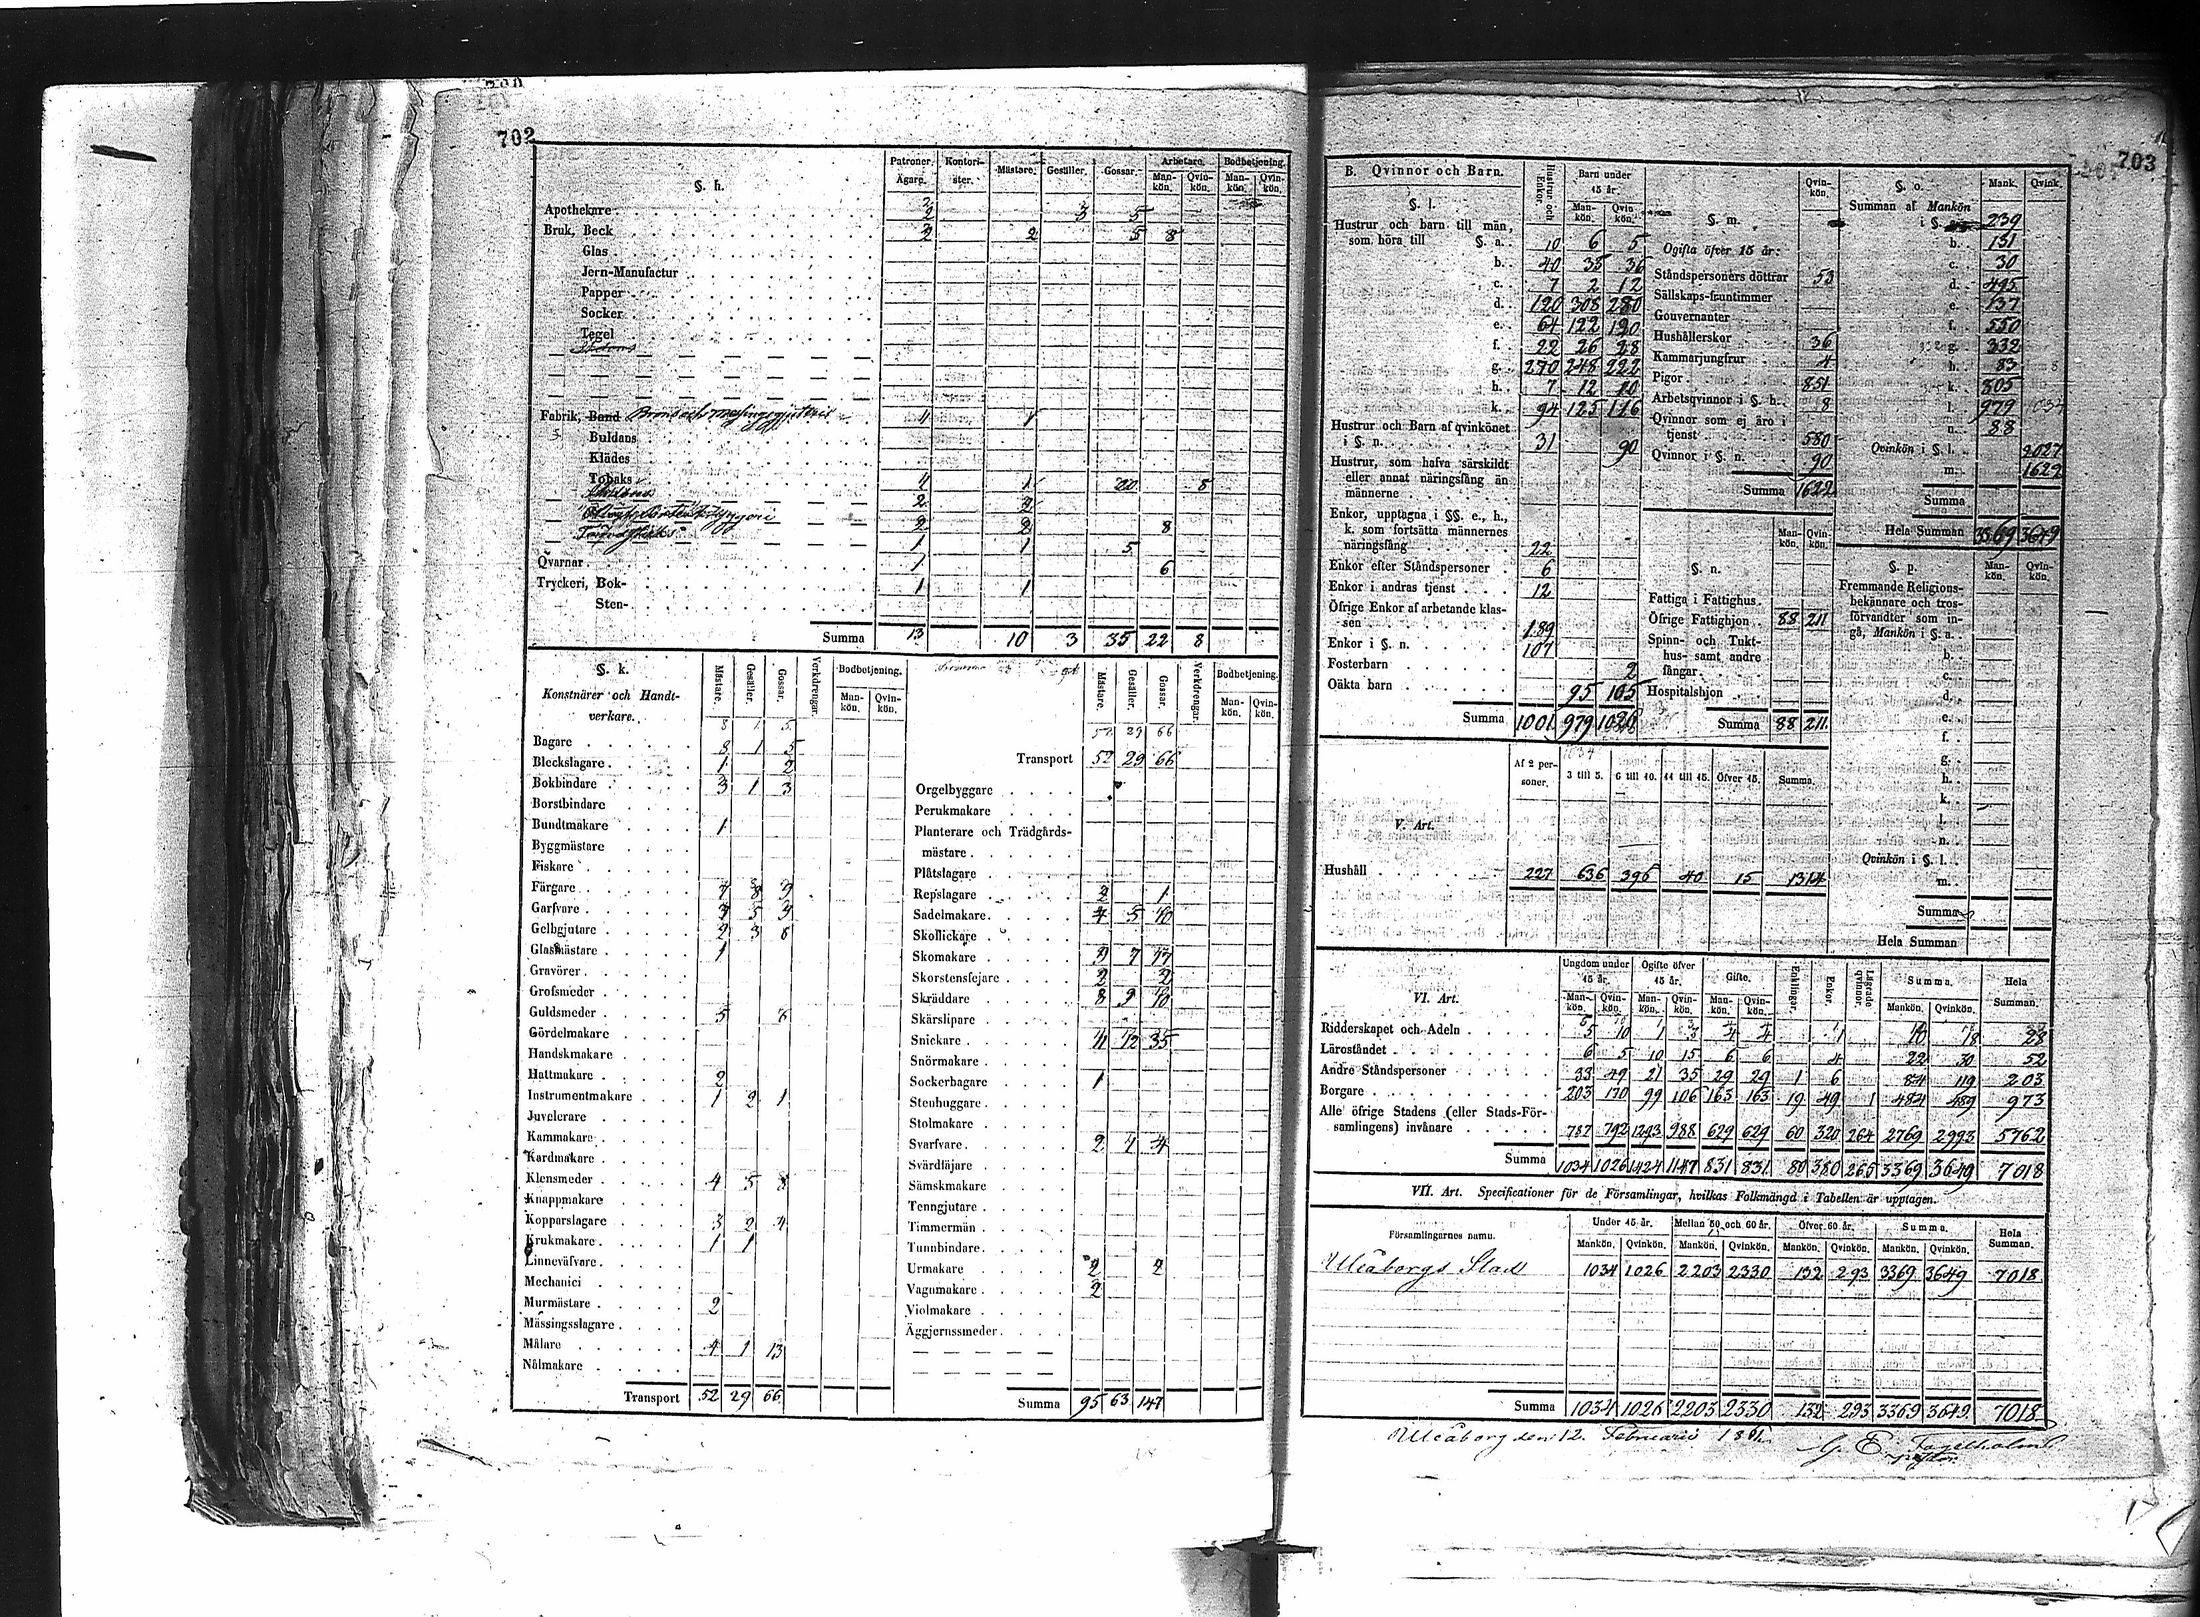 702
§. h.
Patroner. Ägare. Kontorister. Mästare. Gesäller. Gossar. Arbetare. Mankön. Qvinkön. Bodbetjening. Mankön. Qvinkön.
Apothekare 2 3 5
Bruk, Beck 2 2 5 8
Glas
Jern-Manufactur
Papper
Socker
Tegel
Fabrik, Band
Buldans
Klädes
Tobaks 20 8
2 2
2 2 8
1 1 5
Qvarnar 1 6
Tryckeri, Bok- 1 1
Sten-
Summa 13 10 3 35 22 8
§. k.
Konstnärer och Handtverkare.
Mästare. Gesäller. Gossar. Verkdrengar. Bodbetjening. Mankön. Qvinkön.
Bagare 8 1 5
Bleckslagare 1 2
Bokbindare 3 1 3
Borstbindare
Bundtmakare 1
Byggmästare
Fiskare
Färgare
Garfvare
Gelbgjutare 2 3 8
Glasmästare 1
Gravörer
Grofsmeder
Guldsmeder 5
Gördelmakare
Handskmakare
Hattmakare 2
Instrumentmakare 1 2 1
Juvelerare
Kammakare
Kardmakare
Klensmeder 4 5 8
Knappmakare
Kopparslagare 3 2 4
Krukmakare 1 1
Linneväfvare
Mechanici
Murmästare 2
Mässingsslagare
Målare 4 1 13
Nålmakare
Transport 52 29 66
Mästare. Gesäller. Gossar. Verkdrengar. Bodbetjening. Mankön. Qvinkön.
52 29 66
Transport 52 29 66
Orgelbyggare
Perukmakare
Planterare och Trädgårdsmästare
Plåtslagare
Repslagare 2 1
Sadelmakare 4 5 10
Skoflickare
Skomakare 7 17
Skorstensfejare 2 2
Skräddare 8 9 10
Skärslipare
Snickare 11 12 35
Snörmakare
Sockerbagare 1
Stenhuggare
Stolmakare
Svarfvare 2 1 4
Svärdfäjare
Sämskmakare
Tenngjutare
Timmermän
Tunnbindare
Urmakare 2 2
Vagnmakare 2
Violmakare
Äggjernssmeder
Summa 95 63 147
703
B. Qvinnor och Barn.
Hustrur och Enkor. Barn under 15 år. Mankön. Qvinkön.
§. l.
Hustrur och barn till män,
som höra till §. a. 10 6 5
b. 40 35 36
c. 7 2 12
d. 120 308 280
e. 64 122 120
f. 22 26 28
g. 270 248 222
h. 7 12 10
k. 94 125 116
Hustrur och Barn af qvinkönet
i §. n. 31 90
Hustrur, som hafva särskildt
eller annat näringsfång än
männerne
Enkor, upptagna i §§. e., h.,
k. som fortsätta männernes
näringsfång 22
Enkor efter Ståndspersoner 6
Enkor i andras tjenst 12
Öfrige Enkor af arbetande klassen 189
Enkor i §. n. 107
Fosterbarn 2
Oäkta barn 95 105
Summa 1001 979 1026
§. m.
Qvinkön.
Ogifta öfver 15 år:
Ståndspersoners döttrar 53
Sällskaps-fruntimmer
Gouvernanter
Hushållerskor 36
Kammarjungfrur 4
Pigor 851
Arbetsqvinnor i §. h. 8
Qvinnor som ej äro i
tjenst 580
Qvinnor i §. n. 90
Summa 1622
§. n.
Mankön. Qvinkön.
Fattiga i Fattighus
Öfrige Fattighjon 88 211
Spinn- och Tukthus- samt andre
fångar
Hospitalshjon
Summa 88 211
§. o. Mank. Qvink.
Summan af Mankön
i §. 239
b. 131
c. 30
d. 495
e. 137
f. 550
g. 332
h. 83
k. 305
l. 979 1034
n. 88
Qvinkön i §. l. 2027
m. 1622
Summa
Hela Summan 3369 3649
§. p.
Mankön. Qvinkön.
Fremmande Religionsbekännare och trosförvandter som ingå, Mankön i §. a.
b.
c.
d.
e.
f.
g.
h.
k.
l.
n.
Qvinkön i §. l.
m.
Summa
Hela Summan
V. Art.
Af 2 personer. 3 till 5. 6 till 10. 11 till 15. Öfver 15. Summa.
Hushåll 227 636 396 40 15 1314
VI. Art.
Ungdom under 15 år. Ogifte öfver 15 år. Gifte. Enklingar. Enkor. Lägrade qvinnor. Summa. Hela Summan.
Mankön. Qvinkön. Mankön. Qvinkön. Mankön. Qvinkön. Mankön. Qvinkön.
Ridderskapet och Adeln 5 10 1 3 4 4 1 10 18 28
Läroståndet 6 5 10 15 6 6 4 22 30 52
Andre Ståndspersoner 33 49 21 35 29 29 1 6 84 119 203
Borgare 203 170 99 106 163 163 19 49 1 484 489 973
Alle öfrige Stadens (eller Stads-Församlingens) invånare 787 792 1293 988 629 629 60 320 264 2769 2993 5762
Summa 1034 1026 1424 1147 831 831 80 380 265 3369 3649 7018
VII. Art. Specificationer för de Församlingar, hvilkas Folkmängd i Tabellen är upptagen.
Församlingarnes namn. Under 15 år. Mellan 50 och 60 år. Öfver 60 år. Summa. Hela Summan.
Mankön. Qvinkön. Mankön. Qvinkön. Mankön. Qvinkön. Mankön. Qvinkön.
Uleåborgs Stad 1034 1026 2203 2330 132 293 3369 3649 7018
Summa 1034 1026 2203 2330 132 293 3369 3649 7018
Uleåborg den 12 Februarii